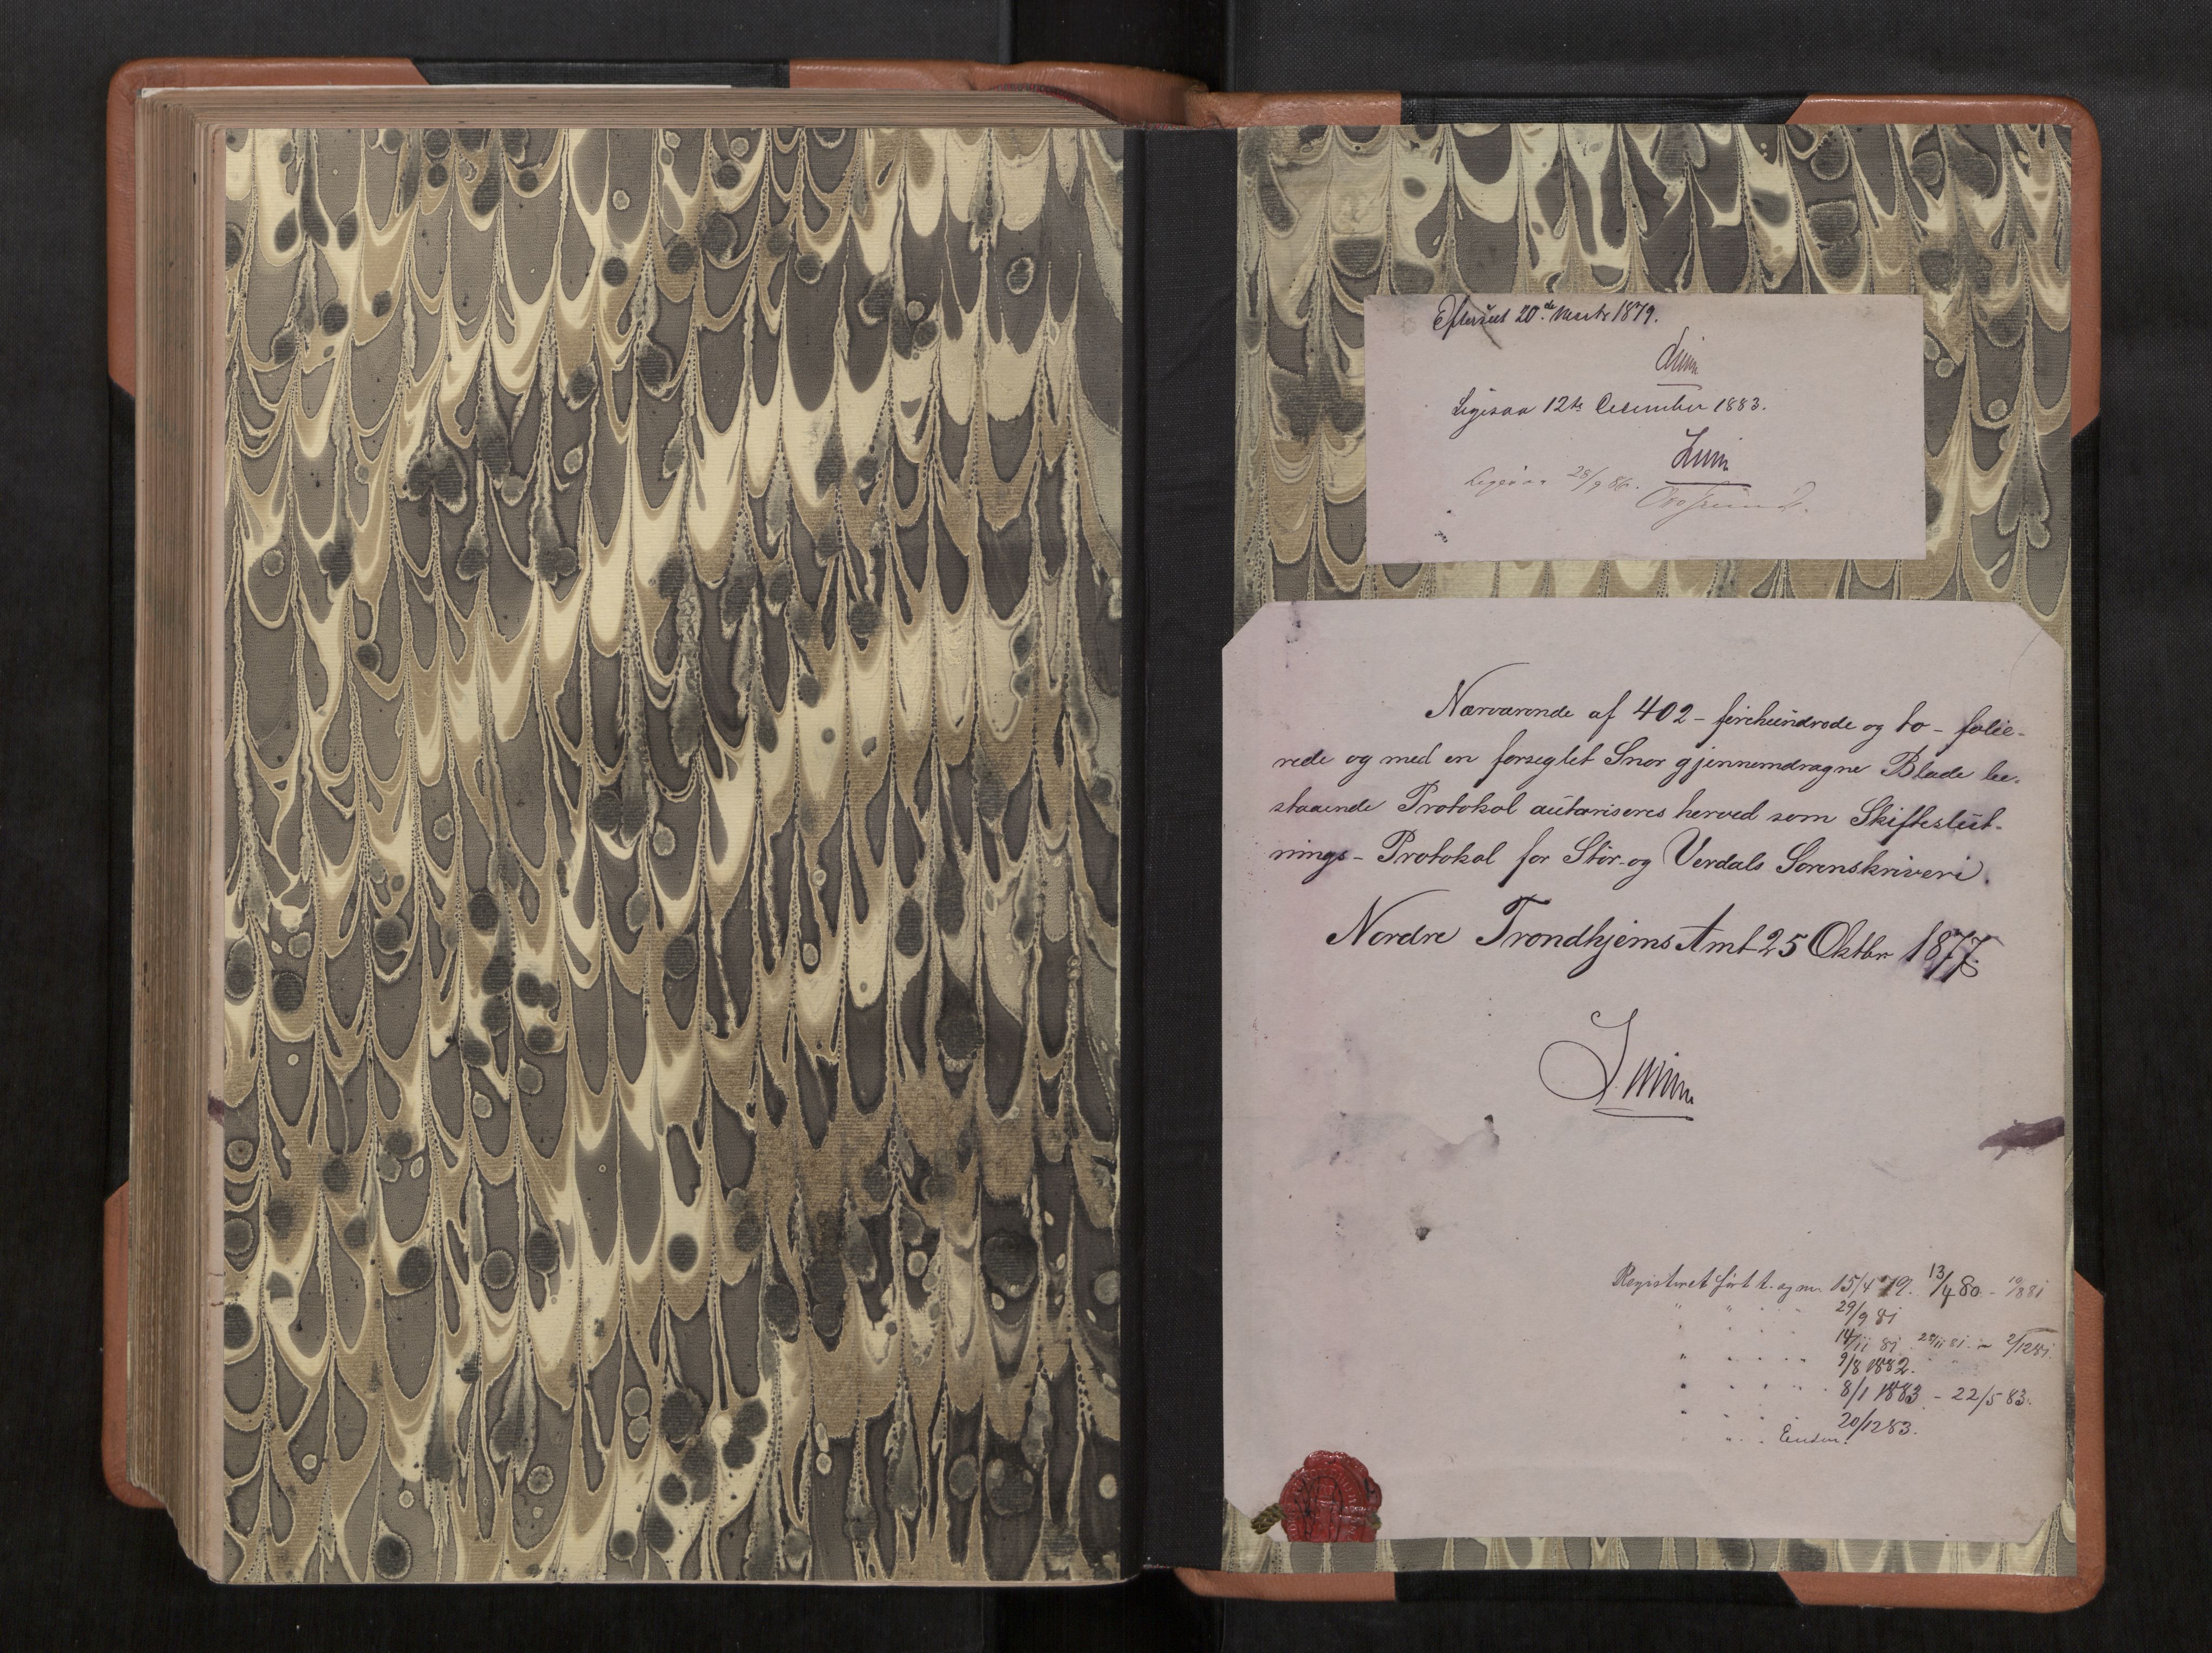 Efterseet 20de Marts 1879.
Ligesaa 12te December 1883.
Ligesaa 28/9 86.
Nærværende af 402 - firehundrede og to - folie-
rede og med en forseglet Snor gjennemdragne Blade be-
staaende Protokol autoriseres herved som Skifteslut-
nings - Protokol for Stør- og Verdals Sorenskriveri.
Nordre Trondhjems Amt 25 Oktbr 1877.
Registeret ført t. og m. 15/4 79. 13/4 80 -
" " 29/9 81
14/11 81. 28/11 81. - 2/12 81.
" 9/8 1882.
" 8/1 1883 - 22/5 83.
" 20/12 83.
" Enden.